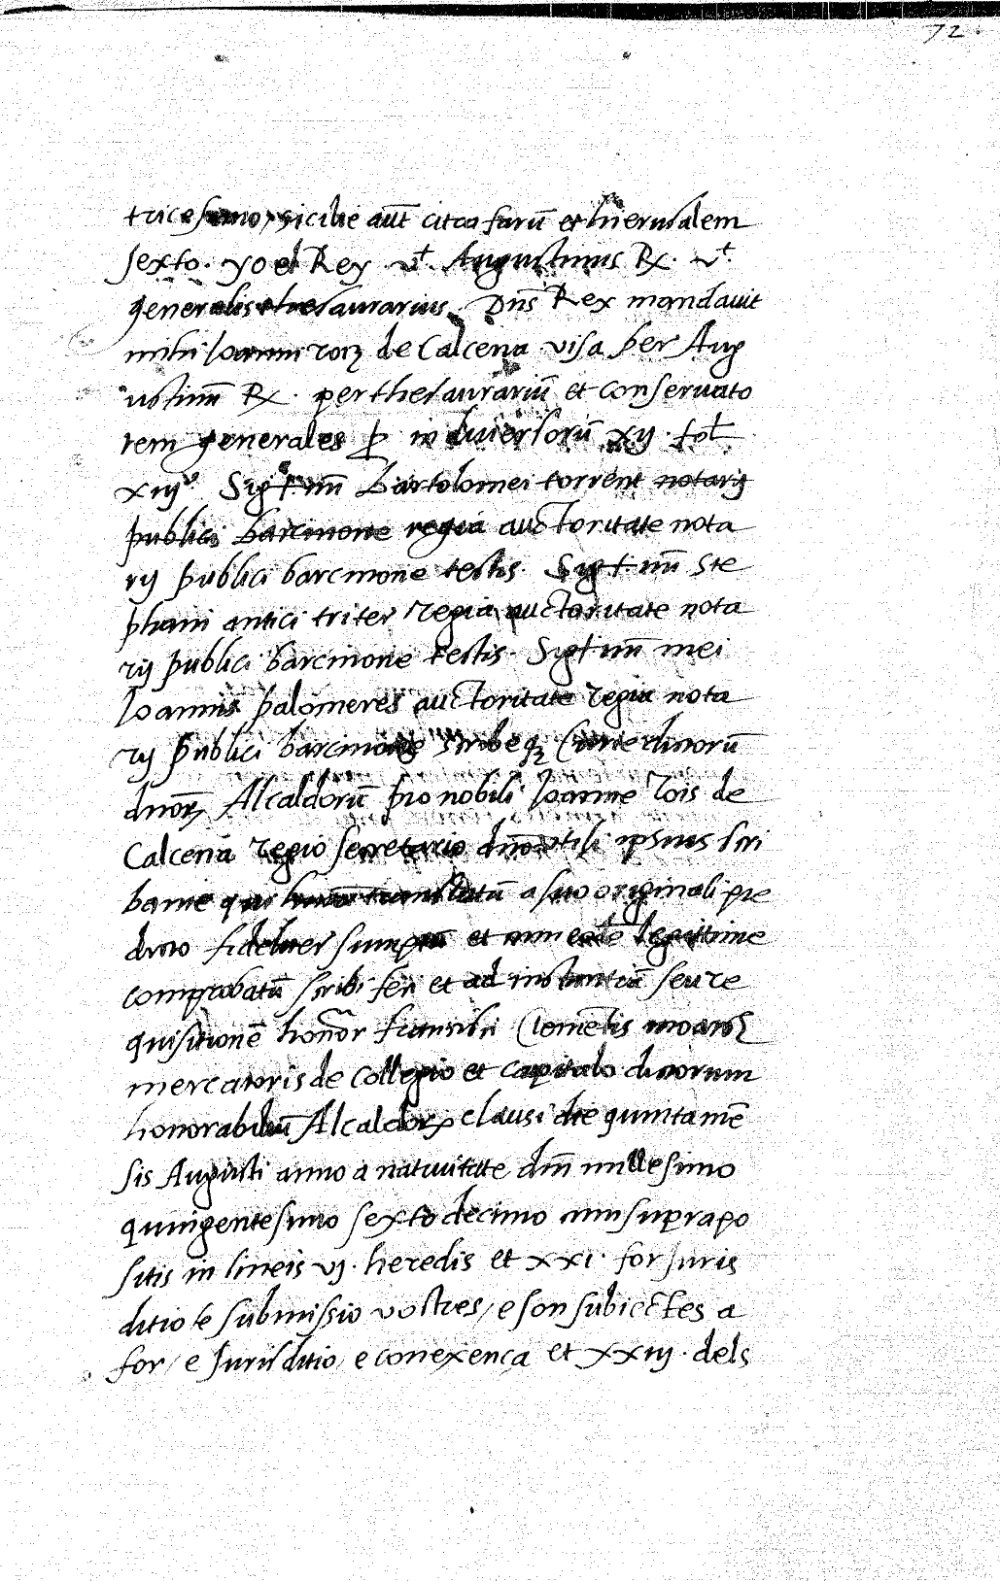 72.
tricesimo, sicilie aut̄ citra farū et hierusalem
sexto. yo el Rey vt. Augustinus Rx. vt.
generalis thesaurarius. Dn̄s Rex mandavit
mihi Joanni roiz de Calcena visa per Aug
ustinū Rx. per thesaurariū et conservato
rem generales p̄ in diversorū xij. fol.
xiij. Sig†nū Bartolomei torrent notarij
publici barcinone regia auctoritate nota
rij publici barcinone testis. Sig†nū Ste
phani antici triter regia auctoritate nota
rij publici barcinone testis. Sig†nū mei
Joannis palomeres auctoritate regia nota
rij publici barcinone scribeqz Curie dictorū
dnorz Alcaldorū pro nobili Joanne Rois de
Calcena regio secretario dn̄o utili ipsius scri
banie qui hm̄oi translatū a suo originali pre
dicto fideliter sumptū et legittime
comprobatū scribi feci et ad instantiā seu re
quisitionē honor francisci Clemētis
mercatoris de collegio et capitulo dictorum
honorabiliū Alcaldorz clausi die quinta mē
sis Augusti anno a nativitate dn̄i millesimo
quingentesimo sexto decimo cum suprapo
sitis in lineis vj. heredis et xxi. for Juris
ditio te submissio vostres / e son subiectes a
for / e Jurisditio / e conexença et xxiij. dels